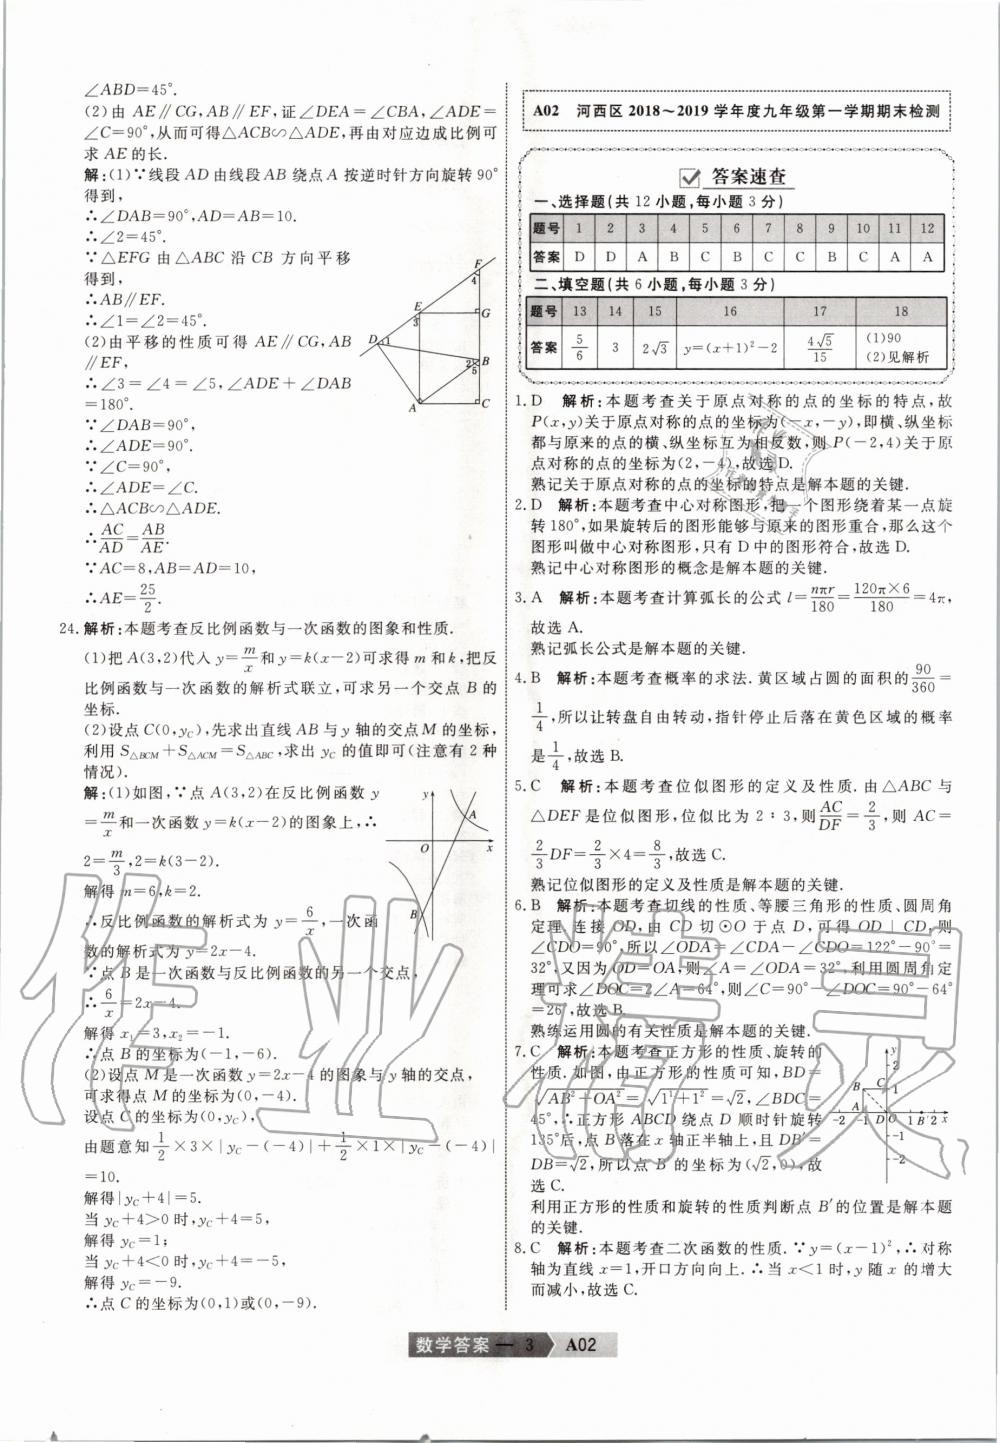 ∠ABD=45°.
(2)由 AE∥CG,AB∥EF,证∠DEA=∠CBA,∠ADE=
∠C=90°,从而可得△ACB∽△ADE,再由对应边成比例可
求 AE 的长.
解:(1)∵线段 AD 由线段 AB 绕点 A 按逆时针方向旋转 90°
得到,
∴∠DAB=90°,AD=AB=10.
∴∠2=45°.
∵△EFG 由△ABC 沿 CB 方向平移
得到,
∴AB∥EF.
∴∠1=∠2=45°.
(2)由平移的性质可得 AE∥CG,AB
∥EF,
∴∠3=∠4=∠5,∠ADE+∠DAB
=180°.
∵∠DAB=90°,
∴∠ADE=90°.
∵∠C=90°,
∴∠ADE=∠C.
∴△ACB∽△ADE.
∴AC/AD=AB/AE.
∵AC=8,AB=AD=10,
∴AE=25/2.
F
4
E
3
G
D
1
2
B
5
A
C
24.解析:本题考查反比例函数与一次函数的图象和性质.
(1)把 A(3,2)代入 y=m/x和 y=k(x-2)可求得 m 和 k,把反
比例函数与一次函数的解析式联立,可求另一个交点 B 的
坐标.
(2)设点 C(0,yC),先求出直线 AB 与 y 轴的交点 M 的坐标,
利用 S△BCM+S△ACM=S△ABC,求出 yC 的值即可(注意有 2 种
情况).
解:(1)如图,∵点 A(3,2)在反比例函数 y
=m/x和一次函数 y=k(x-2)的图象上,∴
2=m/3,2=k(3-2).
解得 m=6,k=2.
∴反比例函数的解析式为 y=6/x,一次函
数的解析式为 y=2x-4.
∵点 B 是一次函数与反比例函数的另一个交点,
∴6/x=2x-4.
解得 x1=3,x2=-1.
∴点 B 的坐标为(-1,-6).
(2)设点 M 是一次函数 y=2x-4 的图象与 y 轴的交点,
可求得点 M 的坐标为(0,-4).
设点 C 的坐标为(0,yC),
由题意知1/2×3×|yC-(-4)|+1/2×1×|yC-(-4)|
=10.
解得|yC+4|=5.
当 yC+4>0 时,yC+4=5,
解得 yC=1;
当 yC+4<0 时,yC+4=-5,
解得 yC=-9.
∴点 C 的坐标为(0,1)或(0,-9).
y
A
O
x
B
A02 河西区 2018~2019 学年度九年级第一学期期末检测
答案速查
一、选择题(共 12 小题,每小题 3 分)
题号 1 2 3 4 5 6 7 8 9 10 11 12
答案 D D A B C B C C B C A A
二、填空题(共 6 小题,每小题 3 分)
题号 13 14 15 16 17 18
答案 5/6 3 2√3 y=(x+1)²-2 4√5/15 (1)90
(2)见解析
1.D 解析:本题考查关于原点对称的点的坐标的特点,故
P(x,y)关于原点对称的点的坐标为(-x,-y),即横、纵坐标
都与原来的点的横、纵坐标互为相反数,则 P(-2,4)关于原
点对称的点的坐标为(2,-4),故选 D.
熟记关于原点对称的点的坐标的特点是解本题的关键.
2.D 解析:本题考查中心对称图形,把一个图形绕着某一点旋
转 180°,如果旋转后的图形能够与原来的图形重合,那么这个
图形叫做中心对称图形,只有 D 中的图形符合,故选 D.
熟记中心对称图形的概念是解本题的关键.
3.A 解析:本题考查计算弧长的公式 l=nπr/180=120π×6/180=4π,
故选 A.
熟记弧长公式是解本题的关键.
4.B 解析:本题考查概率的求法.黄区域占圆的面积的90/360=
1/4,所以让转盘自由转动,指针停止后落在黄色区域的概率
是1/4,故选 B.
5.C 解析:本题考查位似图形的定义及性质.由△ABC 与
△DEF 是位似图形,位似比为 2∶3,则AC/DF=2/3,则 AC=
2/3DF=2/3×4=8/3,故选 C.
熟记位似图形的定义及性质是解本题的关键.
6.B 解析:本题考查切线的性质、等腰三角形的性质、圆周角
定理.连接 OD,由 CD 切⊙O 于点 D,可得 OD⊥CD,则
∠CDO=90°,所以∠ODA=∠CDA-∠CDO=122°-90°=
32°,又因为 OD=OA,则∠A=∠ODA=32°,利用圆周角定
理可求∠DOC=2∠A=64°,则∠C=90°-∠DOC=90°-64°
=26°,故选 B.
熟练运用圆的有关性质是解本题的关键.
7.C 解析:本题考查正方形的性质、旋转的
性质.如图,由正方形的性质可知,BD=
√AB²+OA²=√1²+1²=√2,∠BDC=
45°,∴正方形 ABCD 绕点 D 顺时针旋转
135°后,点 B 落在 x 轴正半轴上,且 DB′=
DB=√2,所以点 B′的坐标为(√2,0),故
选 C.
利用正方形的性质和旋转的性质判断点 B′的位置是解本题
的关键.
y
2
B C 1
A
-2 -1 O 1 B′ 2 x
-1
-2
8.C 解析:本题考查二次函数的性质.∵y=(x-1)²,∴对称
轴为直线 x=1,开口方向向上.∴当 x<1 时,y 随 x 的增大
而减小,故选 C.
数学答案 — 3 A02
作业精灵